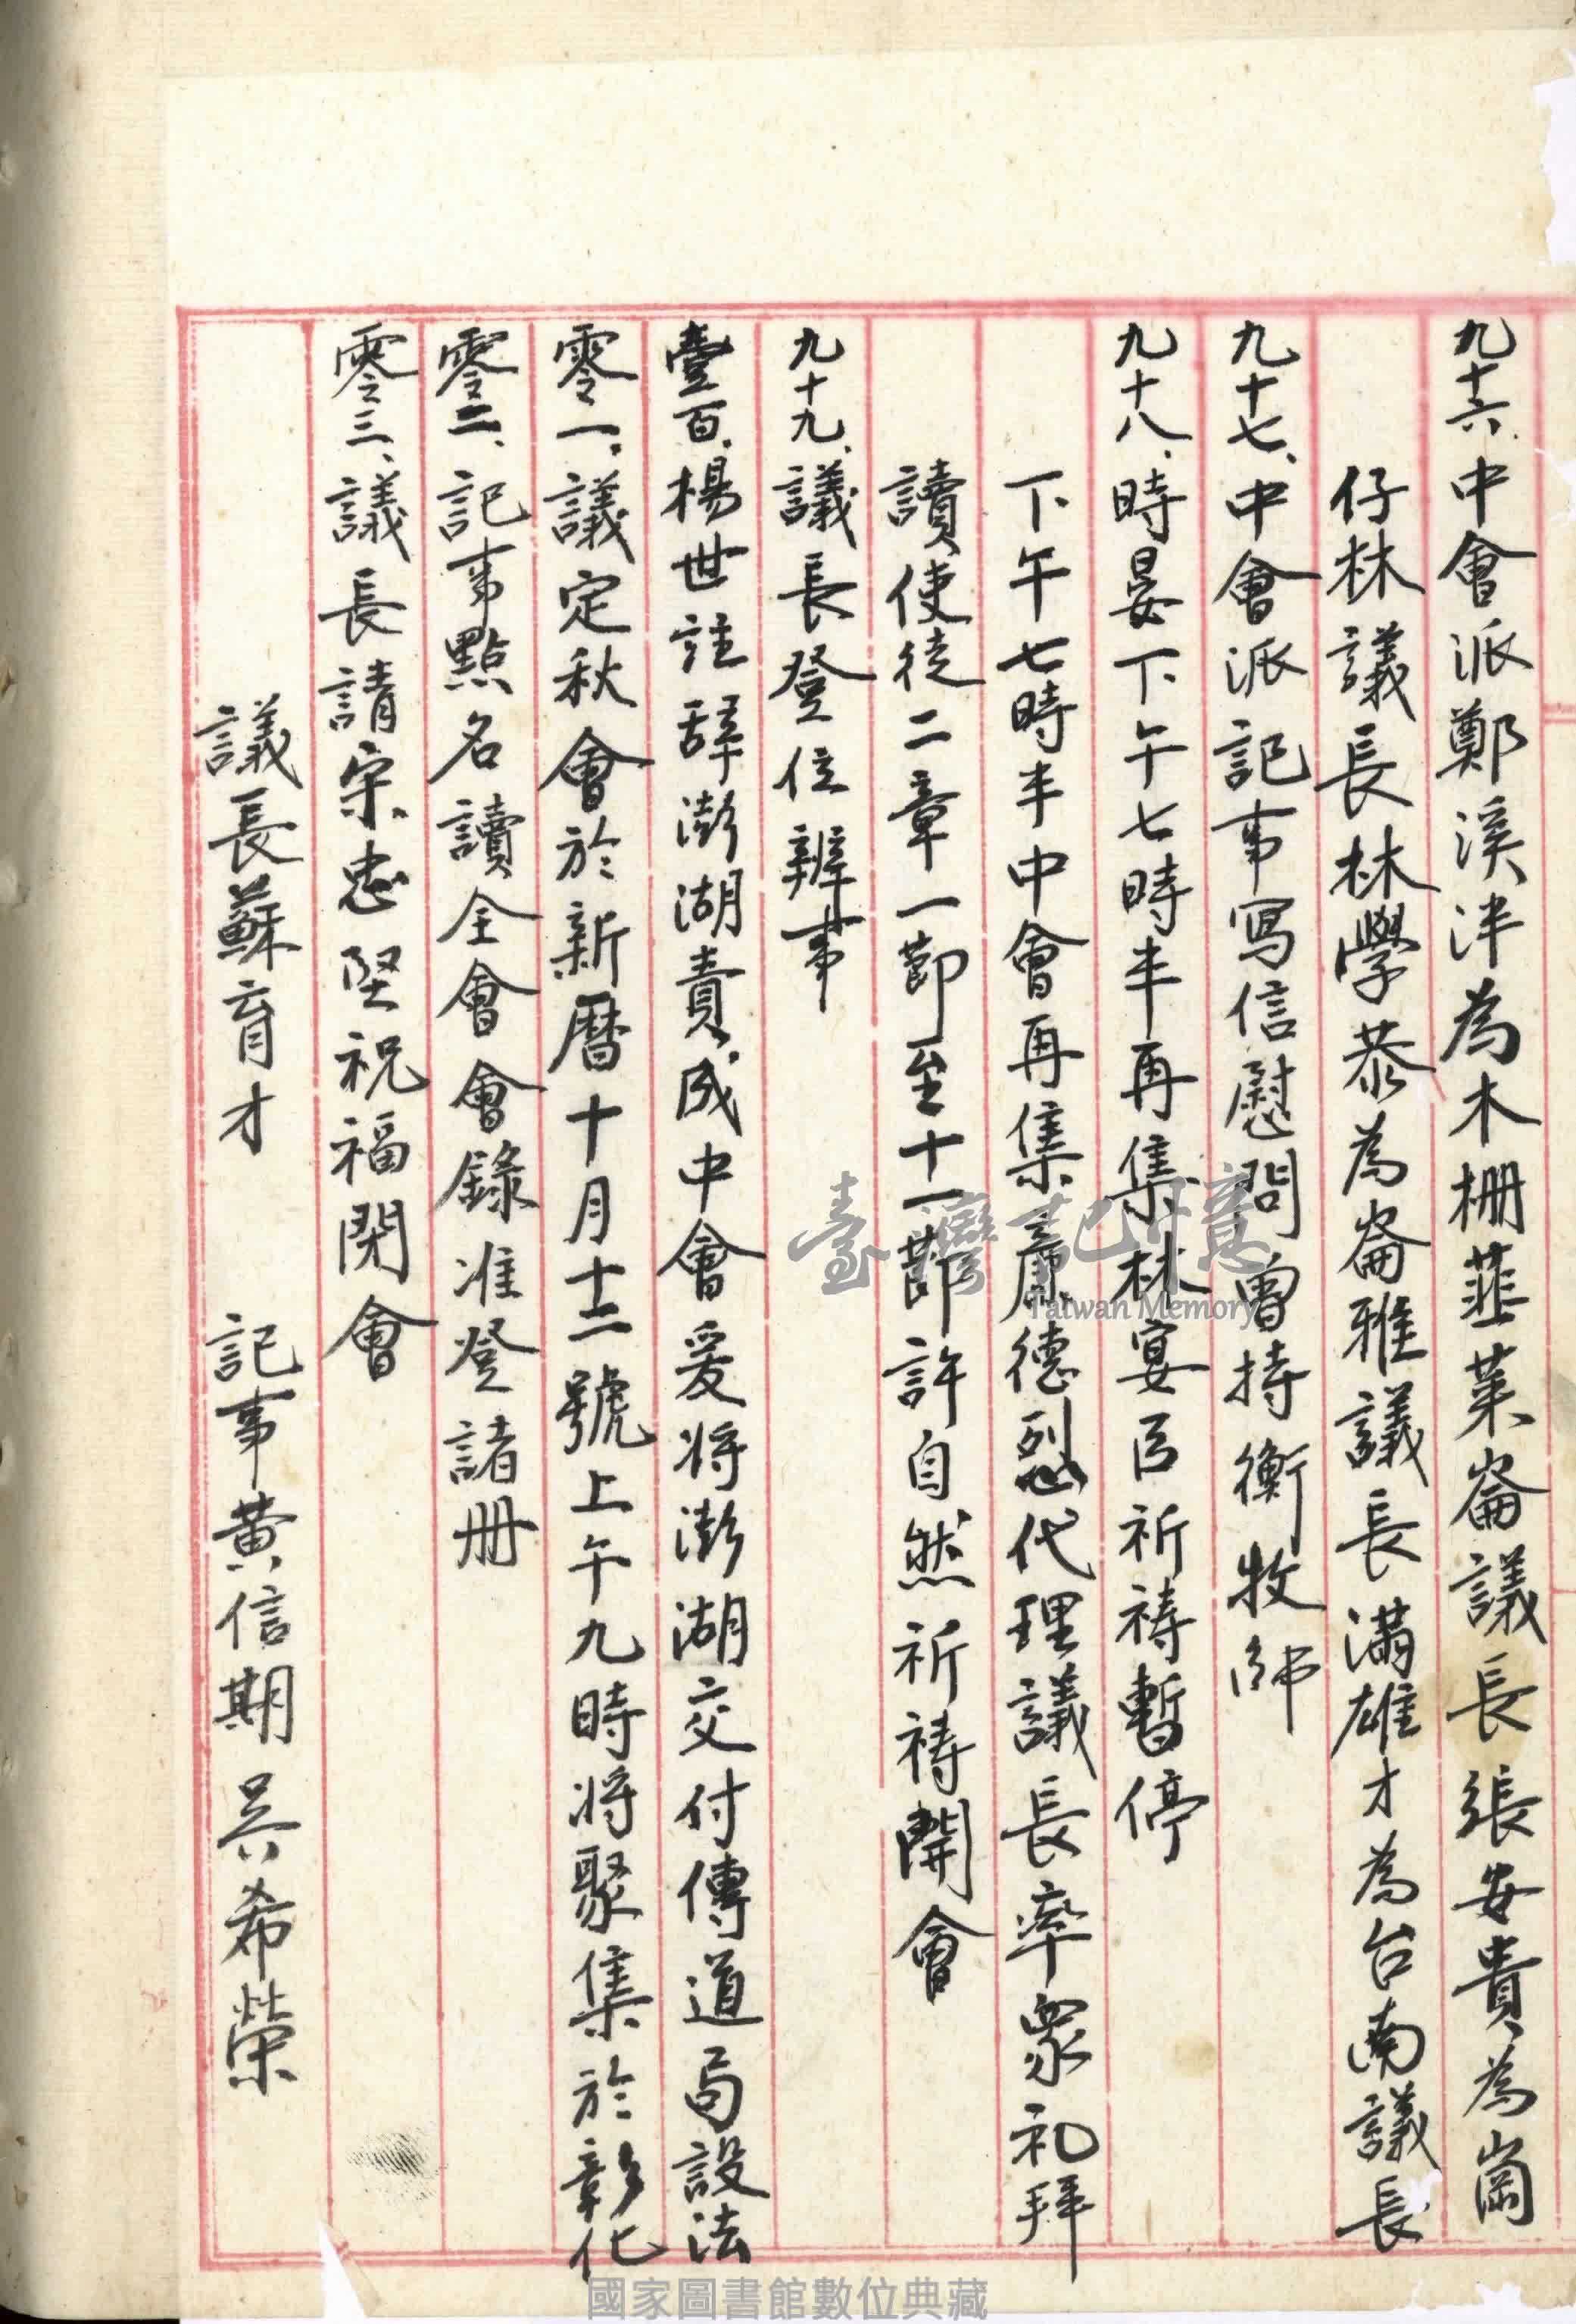 九十六、中會派鄭溪泮為木柵韮菜崙議長張安貴為崗
仔林議長林學恭為崙雅議長滿雄才為台南議長
九十七、中會派記事寫信慰問曾持衡牧師
九十八、時晏下午七時半再集林宴臣祈禱暫停
下午七時半中會再集廉德烈代理議長率眾礼拜
讀使徒二章一節至十一節許自然祈禱開會
九十九、議長登位辦事
壹百、楊世註辞澎湖責成中會爰将澎湖交付傳道局設法
零一、議定秋會於新曆十月十二號上午九時将聚集於彰化
零二、記事點名讀全會會錄准登諸册
零三、議長請宋忠堅祝福閉會
議長蘇育才 記事黃信期 吳希榮
臺灣記憶
Taiwan Memory
國家圖書館數位典藏